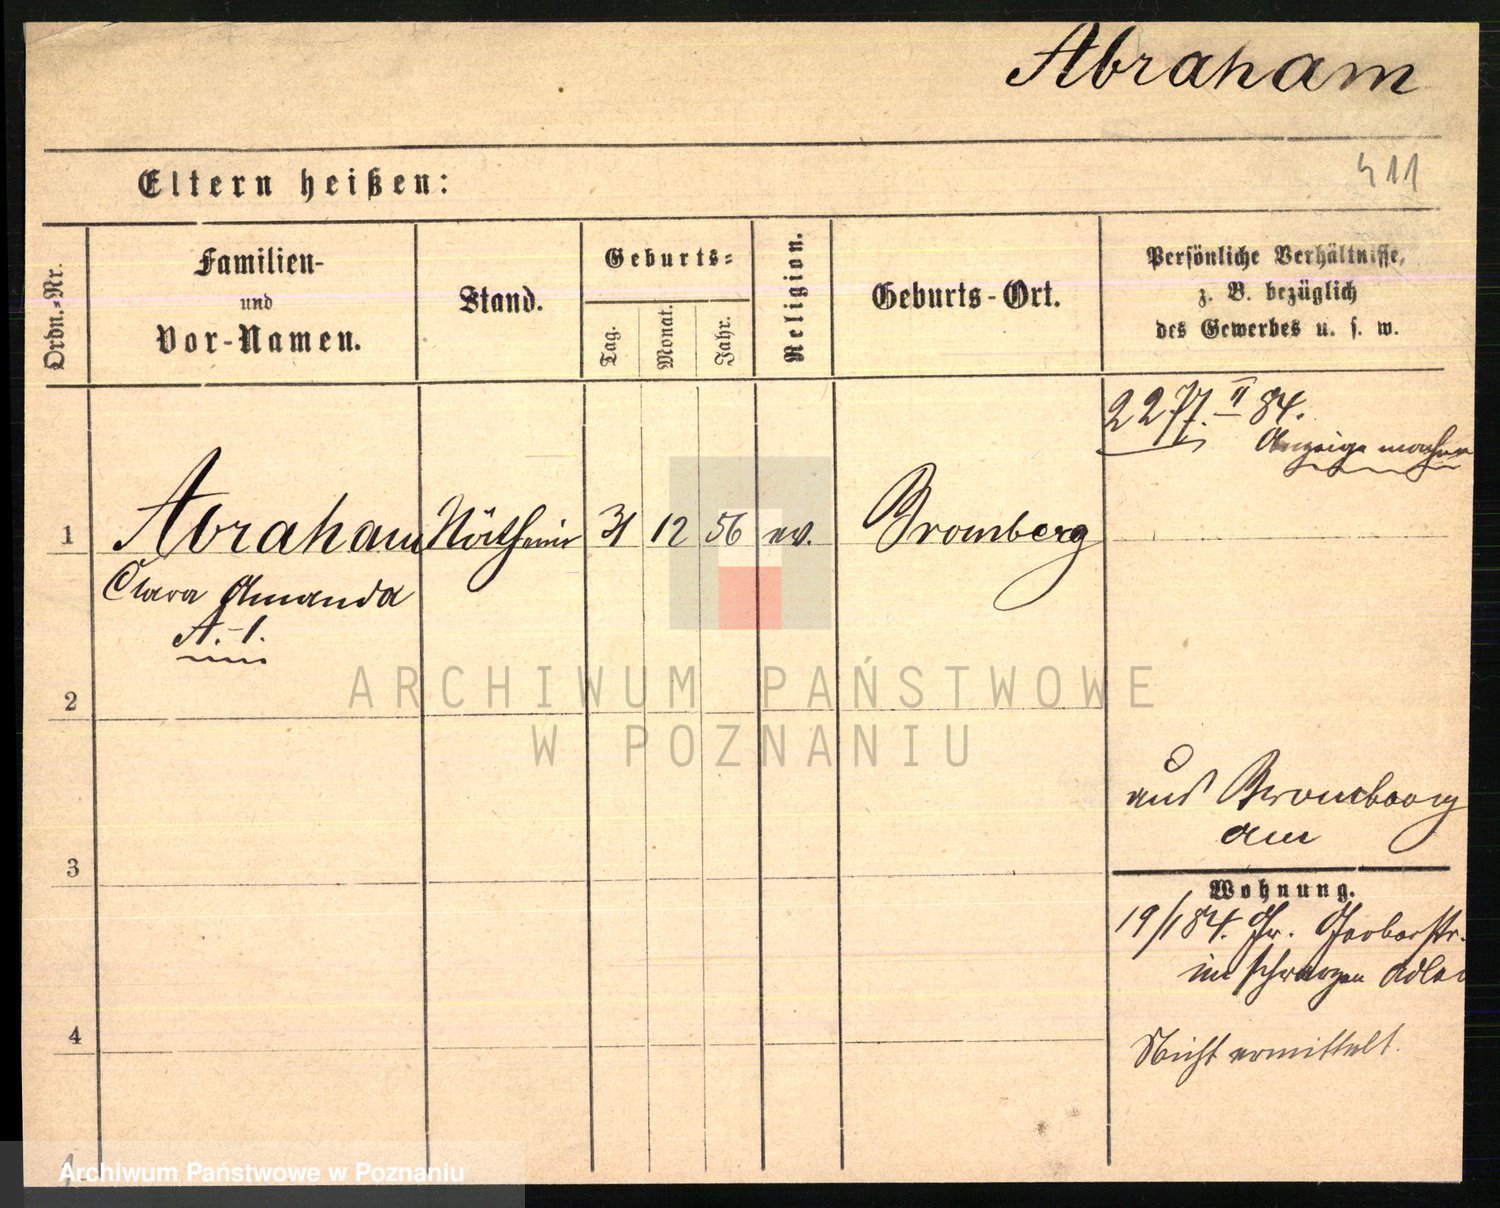 Abraham
411
Eltern heißen:
Ordn.-Nr.
Familien-
und
Vor-Namen.
Stand.
Geburts-
Tag.
Monat.
Jahr.
Religion.
Geburts-Ort.
Persönliche Verhältnisse,
z. B. bezüglich
des Gewerbes u. s. w.
2277. II 84.
Anzeige machen
1 Abraham 31 12 56 ev. Bromberg
Clara Amanda
A.-1.
2
ARCHIWUM PAŃSTWOWE
W POZNANIU
aus Bromberg
am
3
Wohnung.
19/1 84. Gr. Gerberstr.
im schwarzen Adler
4
Nicht ermittelt.
Archiwum Państwowe w Poznaniu